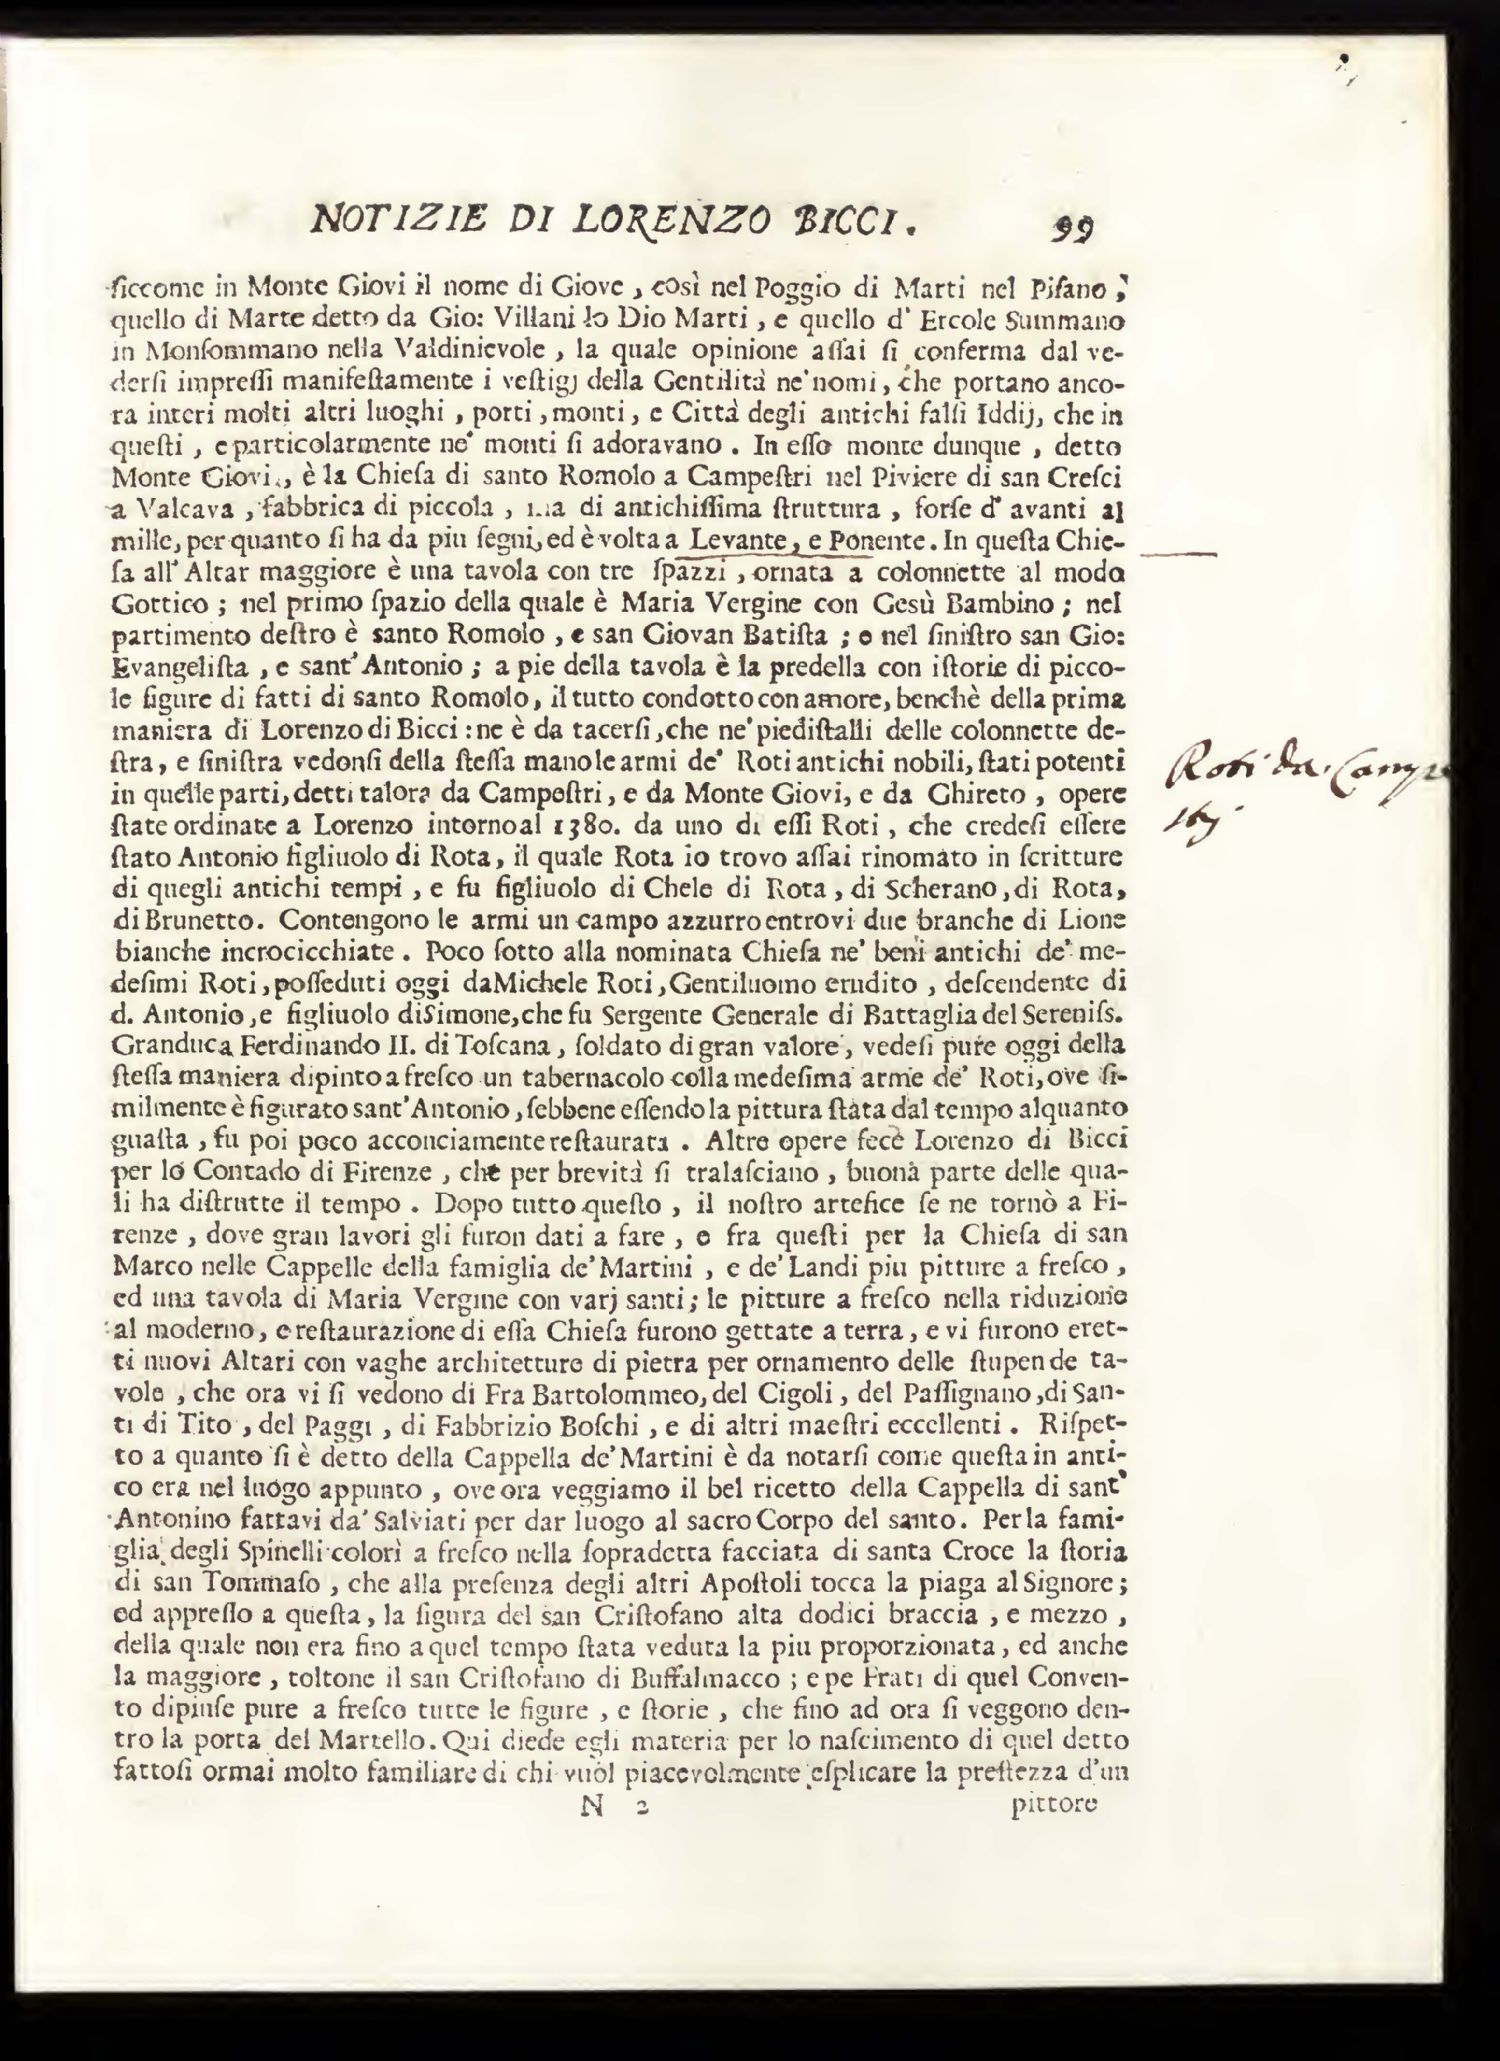 NOTIZIE DI LORENZO BICCI. 99
ſiccome in Monte Giovi il nome di Giove, così nel Poggio di Marti nel Piſano,
quello di Marte detto da Gio: Villani lo Dio Marti, e quello d' Ercole Summano
in Monſommano nella Valdinievole, la quale opinione aſſai ſi conferma dal ve-
derſi impreſſi manifeſtamente i veſtigj della Gentilità ne' nomi, che portano anco-
ra interi molti altri luoghi, porti, monti, e Città degli antichi falſi Iddij, che in
queſti, e particolarmente ne' monti ſi adoravano. In eſſo monte dunque, detto
Monte Giovi, è la Chieſa di santo Romolo a Campeſtri nel Piviere di san Creſci
a Valcava, fabbrica di piccola, ma di antichiſſima ſtruttura, forſe d' avanti al
mille, per quanto ſi ha da piu ſegni, ed è volta a Levante, e Ponente. In queſta Chie-
ſa all' Altar maggiore è una tavola con tre ſpazzi, ornata a colonnette al modo
Gottico; nel primo ſpazio della quale è Maria Vergine con Gesù Bambino; nel
partimento deſtro è santo Romolo, e san Giovan Batiſta; e nel ſiniſtro san Gio:
Evangeliſta, e sant' Antonio; a pie della tavola è la predella con iſtorie di picco-
le figure di fatti di santo Romolo, il tutto condotto con amore, benchè della prima
maniera di Lorenzo di Bicci: ne è da tacerſi, che ne' piediſtalli delle colonnette de-
ſtra, e ſiniſtra vedonſi della ſteſſa mano le armi de' Roti antichi nobili, ſtati potenti
in quelle parti, detti talora da Campeſtri, e da Monte Giovi, e da Ghireto, opere
ſtate ordinate a Lorenzo intorno al 1380. da uno di eſſi Roti, che credeſi eſſere
ſtato Antonio figliuolo di Rota, il quale Rota io trovo aſſai rinomato in ſcritture
di quegli antichi tempi, e fu figliuolo di Chele di Rota, di Scherano, di Rota,
di Brunetto. Contengono le armi un campo azzurro entrovi due branche di Lione
bianche incrocicchiate. Poco ſotto alla nominata Chieſa ne' beni antichi de' me-
deſimi Roti, poſſeduti oggi da Michele Roti, Gentiluomo erudito, deſcendente di
d. Antonio, e figliuolo di Simone, che fu Sergente Generale di Battaglia del Sereniſs.
Granduca Ferdinando II. di Toſcana, ſoldato di gran valore, vedeſi pure oggi della
ſteſſa maniera dipinto a freſco un tabernacolo colla medeſima arme de' Roti, ove ſi-
milmente è figurato sant' Antonio, ſebbene eſſendo la pittura ſtata dal tempo alquanto
guaſta, fu poi poco acconciamente reſtaurata. Altre opere fece Lorenzo di Bicci
per lo Contado di Firenze, che per brevità ſi tralaſciano, buona parte delle qua-
li ha diſtrutte il tempo. Dopo tutto queſto, il noſtro artefice ſe ne tornò a Fi-
renze, dove gran lavori gli furon dati a fare, e fra queſti per la Chieſa di san
Marco nelle Cappelle della famiglia de' Martini, e de' Landi piu pitture a freſco,
ed una tavola di Maria Vergine con varj santi; le pitture a freſco nella riduzione
al moderno, e reſtaurazione di eſſa Chieſa furono gettate a terra, e vi furono eret-
ti nuovi Altari con vaghe architetture di pietra per ornamento delle ſtupende ta-
vole, che ora vi ſi vedono di Fra Bartolommeo, del Cigoli, del Paſſignano, di San-
ti di Tito, del Paggi, di Fabbrizio Boſchi, e di altri maeſtri eccellenti. Riſpet-
to a quanto ſi è detto della Cappella de' Martini è da notarſi come queſta in anti-
co era nel luogo appunto, ove ora veggiamo il bel ricetto della Cappella di sant'
Antonino fattavi da' Salviati per dar luogo al sacro Corpo del santo. Per la fami-
glia degli Spinelli colorì a freſco nella ſopradetta facciata di santa Croce la ſtoria
di san Tommaſo, che alla preſenza degli altri Apoſtoli tocca la piaga al Signore;
ed appreſſo a queſta, la figura del san Criſtofano alta dodici braccia, e mezzo,
della quale non era fino a quel tempo ſtata veduta la piu proporzionata, ed anche
la maggiore, toltone il san Criſtofano di Buffalmacco; e pe Frati di quel Conven-
to dipinſe pure a freſco tutte le figure, e ſtorie, che fino ad ora ſi veggono den-
tro la porta del Martello. Qui diede egli materia per lo naſcimento di quel detto
fattoſi ormai molto familiare di chi vuol piacevolmente eſplicare la preſtezza d'un
N 2 pittore
Roti da